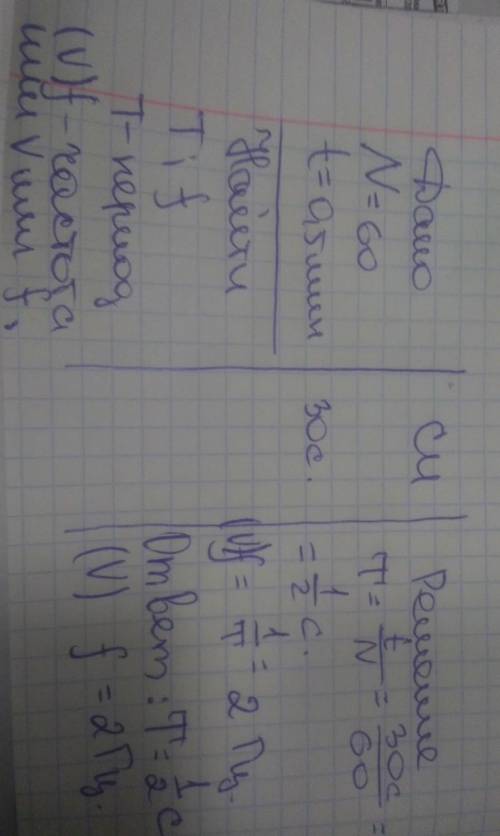 Дано
N = 60
t = 0,5 мин
Найти
T; f
T - период
(V) f - частота
или V или f,
СИ
30 с.
Решение
T = t/N = 30с/60 =
= 1/2 с.
(V) f = 1/T = 2 Гц.
Ответ: T = 1/2 с
(V) f = 2 Гц.